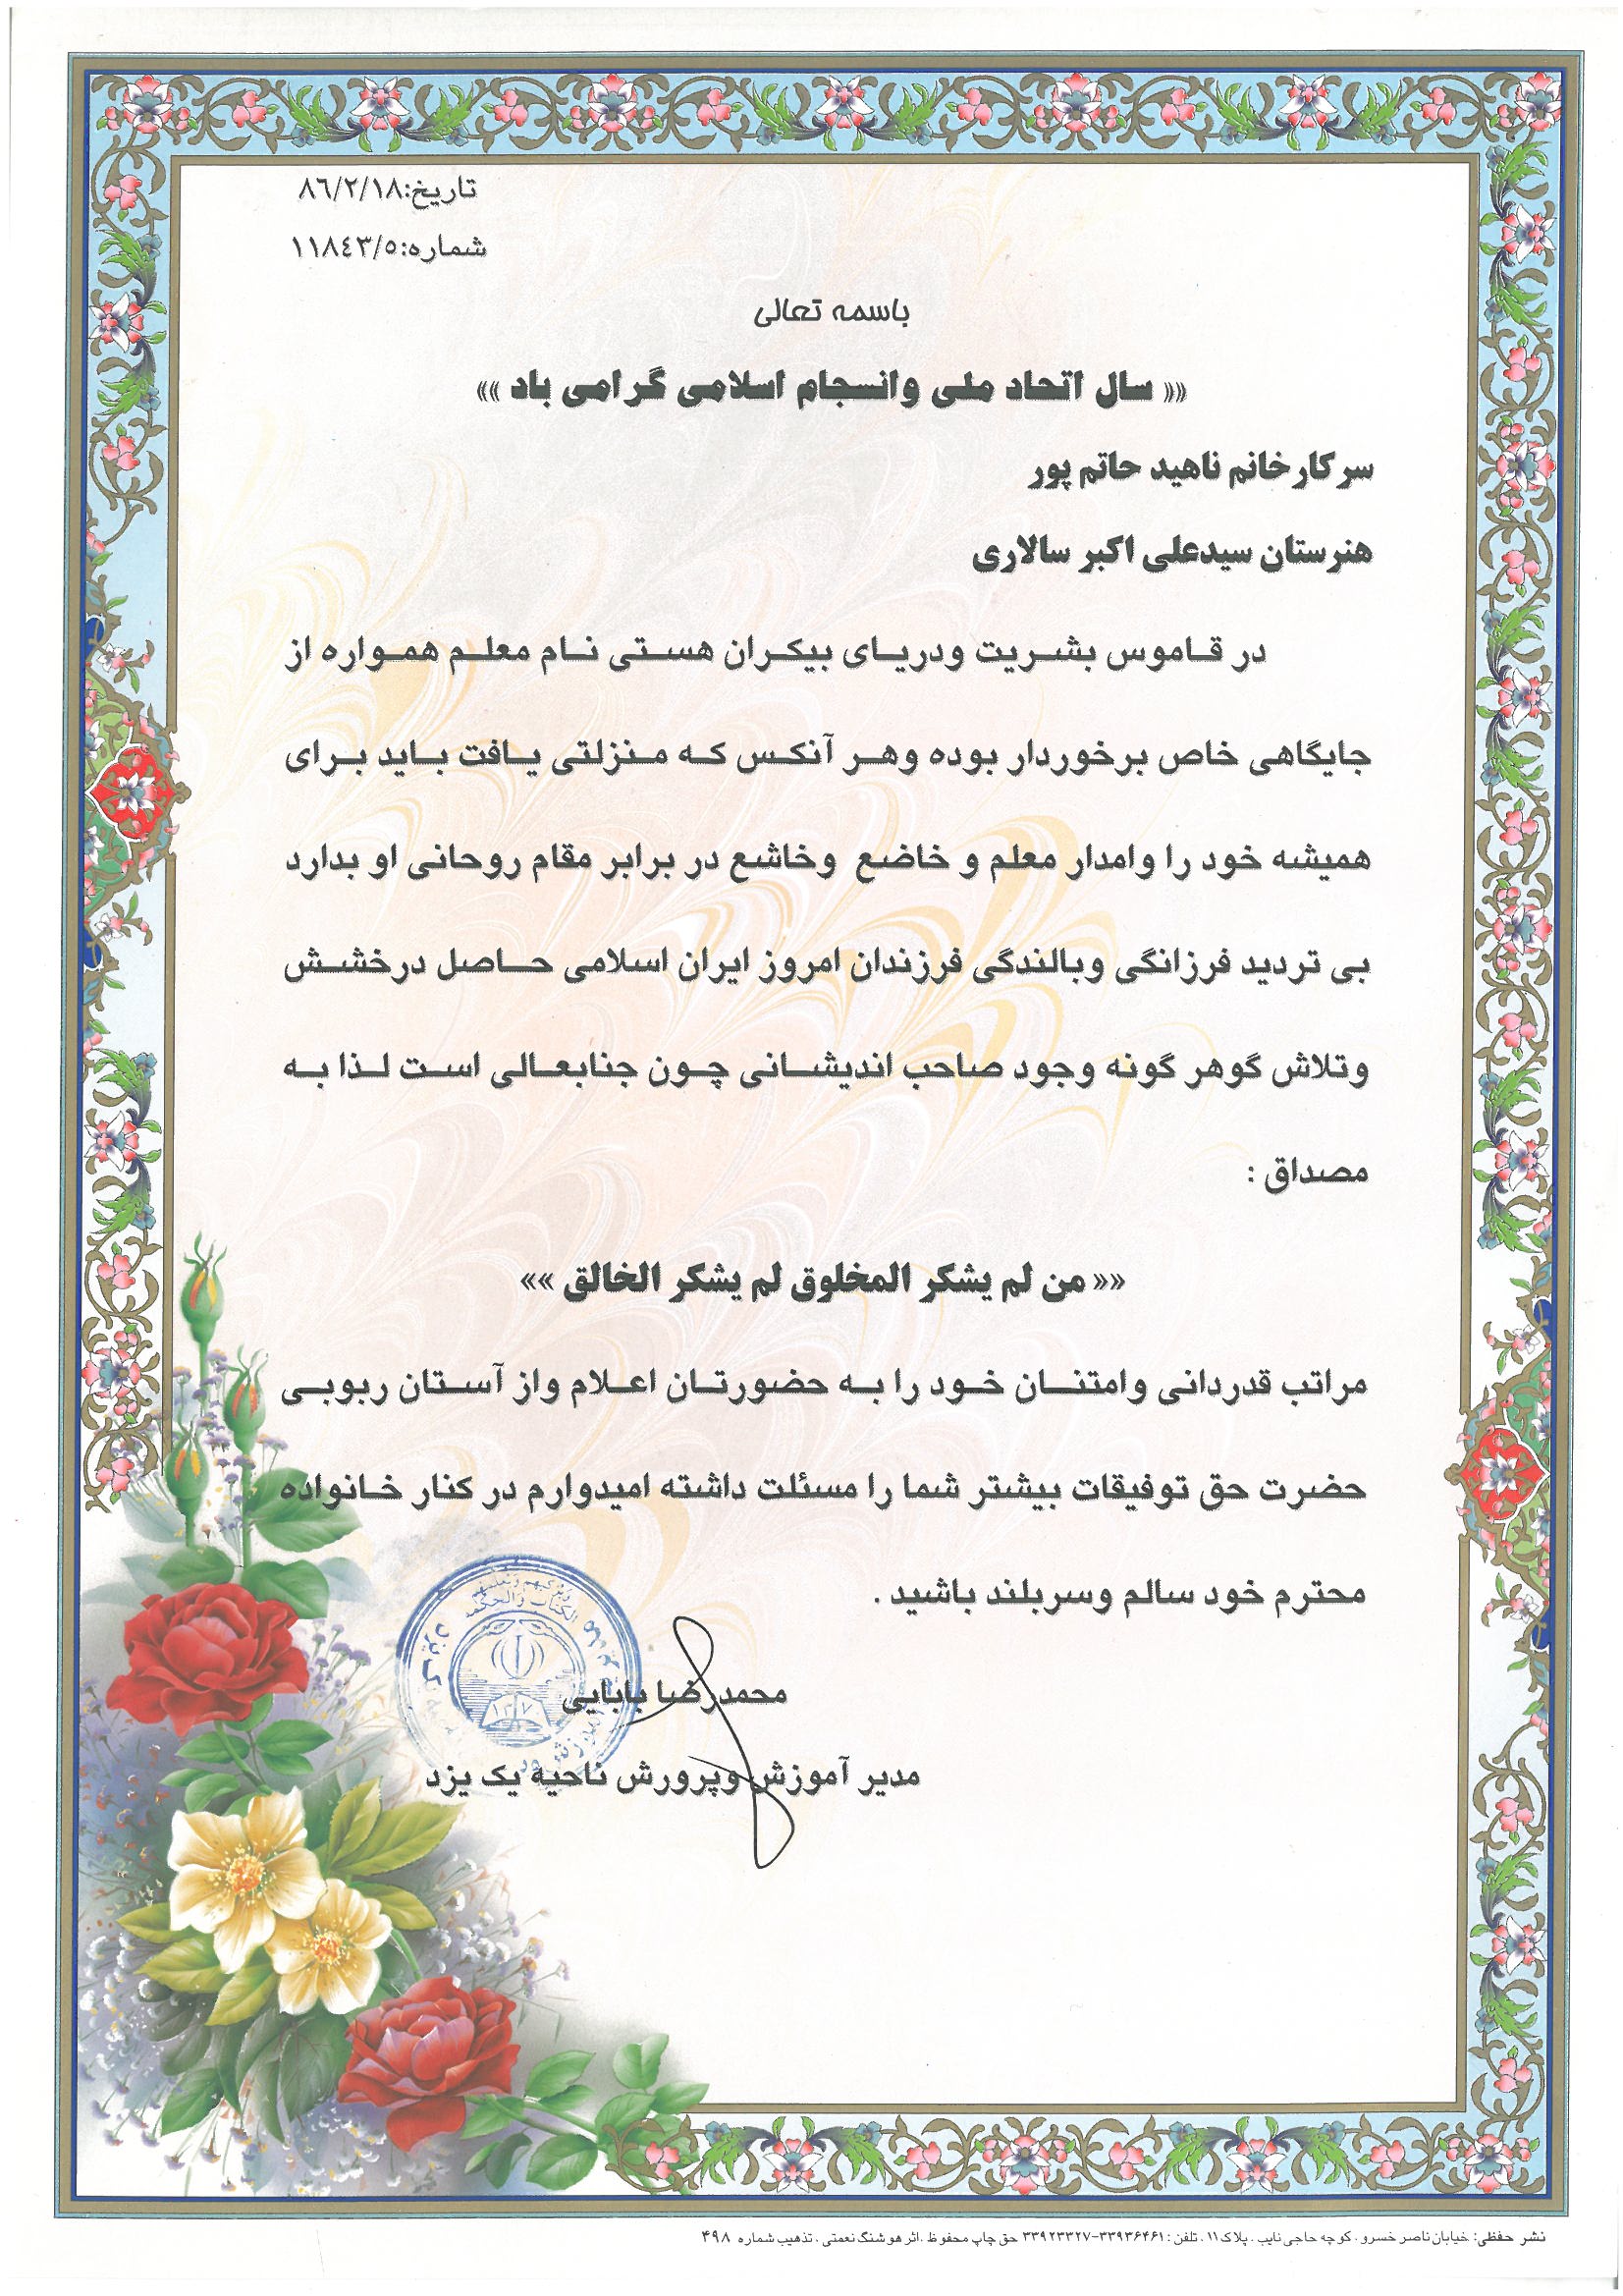 تاریخ:۸٦/۲/۱۸
شماره:۱۱۸٤۳/٥
باسمه تعالی
«« سال اتحاد ملی وانسجام اسلامی گرامی باد »»
سرکارخانم ناهید حاتم پور
هنرستان سیدعلی اکبر سالاری
در قاموس بشریت ودریای بیکران هستی نام معلم همواره از
جایگاهی خاص برخوردار بوده وهر آنکس که منزلتی یافت باید برای
همیشه خود را وامدار معلم و خاضع وخاشع در برابر مقام روحانی او بدارد
بی تردید فرزانگی وبالندگی فرزندان امروز ایران اسلامی حاصل درخشش
وتلاش گوهر گونه وجود صاحب اندیشانی چون جنابعالی است لذا به
مصداق :
«« من لم یشکر المخلوق لم یشکر الخالق »»
مراتب قدردانی وامتنان خود را به حضورتان اعلام واز آستان ربوبی
حضرت حق توفیقات بیشتر شما را مسئلت داشته امیدوارم در کنار خانواده
محترم خود سالم وسربلند باشید .
محمدرضا بابایی
مدیر آموزش وپرورش ناحیه یک یزد
نشر حفظی: خیابان ناصر خسرو ، کوچه حاجی نایب ، پلاک ۱۱ ، تلفن : ۳۳۹۳۶۴۶۱-۳۳۹۲۳۳۲۷ حق چاپ محفوظ ،اثر هوشنگ نعمتی ، تذهیب شماره ۴۹۸